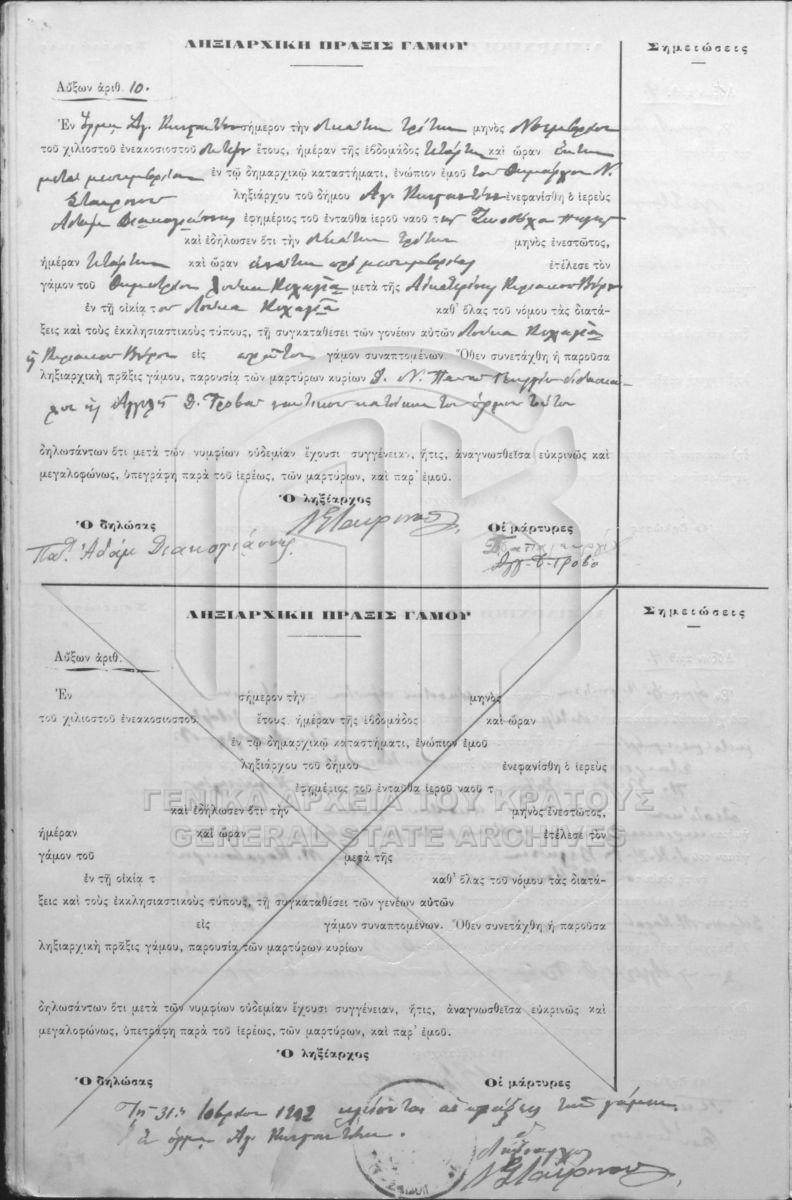 ΛΗΞΙΑΡΧΙΚΗ ΠΡΑΞΙΣ ΓΑΜΟΥ
Σημειώσεις
Αὔξων ἀριθ. 10.
Ἐν ὅρμῳ Ἁγ. σήμερον τὴν δεκάτην τρίτην μηνὸς Νοεμβρίου
τοῦ χιλιοστοῦ ἐνεακοσιοστοῦ ἔτους, ἡμέραν τῆς ἑβδομάδος Τετάρτην καὶ ὥραν
μετὰ μεσημβρίαν ἐν τῷ δημαρχικῷ καταστήματι, ἐνώπιον ἐμοῦ τοῦ Δημάρχου Ν.
Σταυρινοῦ ληξιάρχου τοῦ δήμου Ἁγ. ἐνεφανίσθη ὁ ἱερεὺς
Ἀδὰμ Διακογιάννης ἐφημέριος τοῦ ἐνταῦθα ἱεροῦ ναοῦ τῆς Ζωοδόχου Πηγῆς
καὶ ἐδήλωσεν ὅτι τὴν δεκάτην τρίτην μηνὸς ἐνεστῶτος,
ἡμέραν Τετάρτην καὶ ὥραν πρὸ μεσημβρίας ἐτέλεσε τὸν
γάμον τοῦ Δημητρίου Λουκᾶ μετὰ τῆς Αἰκατερίνης Κυριακοῦ
ἐν τῇ οἰκίᾳ τοῦ Λουκᾶ καθ' ὅλας τοῦ νόμου τὰς διατά-
ξεις καὶ τοὺς ἐκκλησιαστικοὺς τύπους, τῇ συγκαταθέσει τῶν γονέων αὐτῶν Λουκᾶ
Κυριακοῦ εἰς πρῶτον γάμον συναπτομένων. Ὅθεν συνετάχθη ἡ παροῦσα
ληξιαρχικὴ πρᾶξις γάμου, παρουσίᾳ τῶν μαρτύρων κυρίων Ν. Παπαγεωργίου διδασκά-
λου Δ. Γρόβα ναυτικοῦ κατοίκων τοῦ ὅρμου τούτου
δηλωσάντων ὅτι μετὰ τῶν νυμφίων οὐδεμίαν ἔχουσι συγγένειαν, ἥτις, ἀναγνωσθεῖσα εὐκρινῶς καὶ
μεγαλοφώνως, ὑπεγράφη παρὰ τοῦ ἱερέως, τῶν μαρτύρων, καὶ παρ' ἐμοῦ.
Ὁ ληξίαρχος
Ὁ δηλώσας
Οἱ μάρτυρες
Ν Σταυρινοῦ
Παπ. Ἀδὰμ Διακογιάννης
Παπαγεωργίου
Ἀγγ. Δ. Γρόβα
ΛΗΞΙΑΡΧΙΚΗ ΠΡΑΞΙΣ ΓΑΜΟΥ
Σημειώσεις
Αὔξων ἀριθ.
Ἐν σήμερον τὴν μηνὸς
τοῦ χιλιοστοῦ ἐνεακοσιοστοῦ ἔτους ἡμέραν τῆς ἑβδομάδος καὶ ὥραν
ἐν τῷ δημαρχικῷ καταστήματι, ἐνώπιον ἐμοῦ
ληξιάρχου τοῦ δήμου ἐνεφανίσθη ὁ ἱερεὺς
ἐφημέριος τοῦ ἐνταῦθα ἱεροῦ ναοῦ τ
ΓΕΝΙΚΑ ΑΡΧΕΙΑ ΤΟΥ ΚΡΑΤΟΥΣ
καὶ ἐδήλωσεν ὅτι τὴν μηνὸς ἐνεστῶτος,
GENERAL STATE ARCHIVES
ἡμέραν καὶ ὥραν ἐτέλεσε τὸν
γάμον τοῦ μετὰ τῆς
ἐν τῇ οἰκίᾳ τ καθ' ὅλας τοῦ νόμου τὰς διατά-
ξεις καὶ τοὺς ἐκκλησιαστικοὺς τύπους, τῇ συγκαταθέσει τῶν γενέων αὐτῶν
εἰς γάμον συναπτομένων. Ὅθεν συνετάχθη ἡ παροῦσα
ληξιαρχικὴ πρᾶξις γάμου, παρουσίᾳ τῶν μαρτύρων κυρίων
δηλωσάντων ὅτι μετὰ τῶν νυμφίων οὐδεμίαν ἔχουσι συγγένειαν, ἥτις, ἀναγνωσθεῖσα εὐκρινῶς καὶ
μεγαλοφώνως, ὑπεγράφη παρὰ τοῦ ἱερέως, τῶν μαρτύρων, καὶ παρ' ἐμοῦ.
Ὁ ληξίαρχος
Ὁ δηλώσας
Οἱ μάρτυρες
Τῇ 31ῃ κλείονται αἱ πράξεις τῶν γάμων
Ἐν ὅρμῳ Ἁγ.
ὁ
Δήμαρχος
Ν Σταυρινοῦ